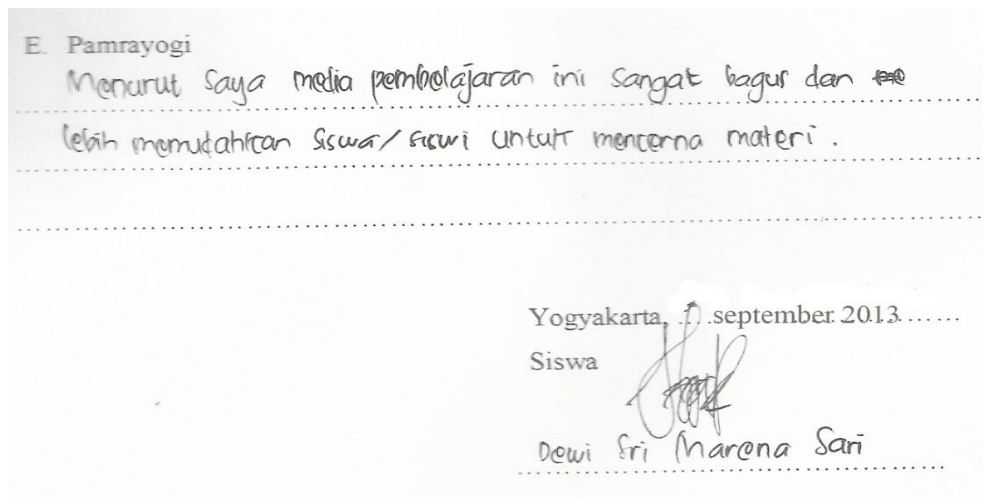 E. Pamrayogi
Menurut saya media pembelajaran ini sangat bagus dan
lebih memudahkan siswa/siswi untuk mencerna materi.
Yogyakarta, september 2013
Siswa
Dewi Sri Marena Sari